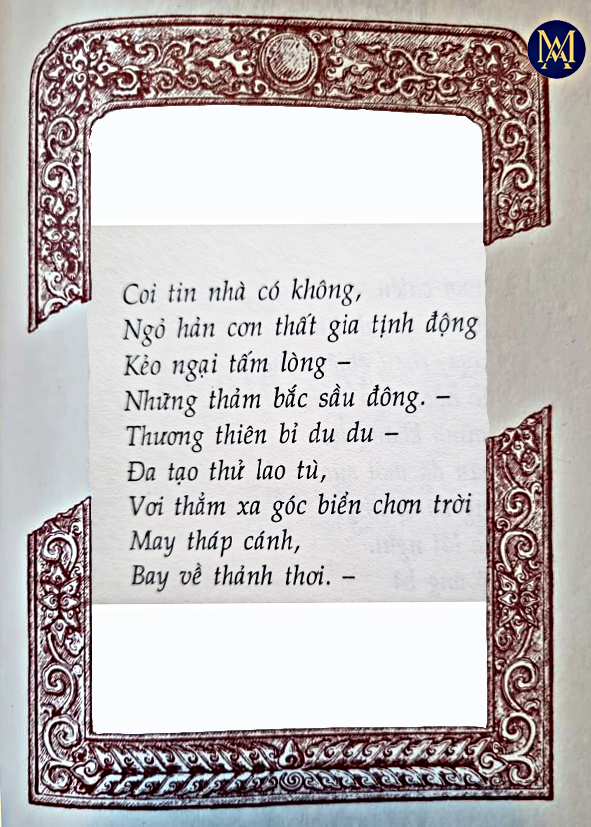 MA
Coi tin nhà có không,
Ngỏ hản cơn thất gia tịnh động
Kẻo ngại tấm lòng –
Những thảm bắc sầu đông. –
Thương thiên bỉ du du –
Đa tạo thử lao tù,
Vơi thẳm xa góc biển chơn trời
May tháp cánh,
Bay về thảnh thơi. –